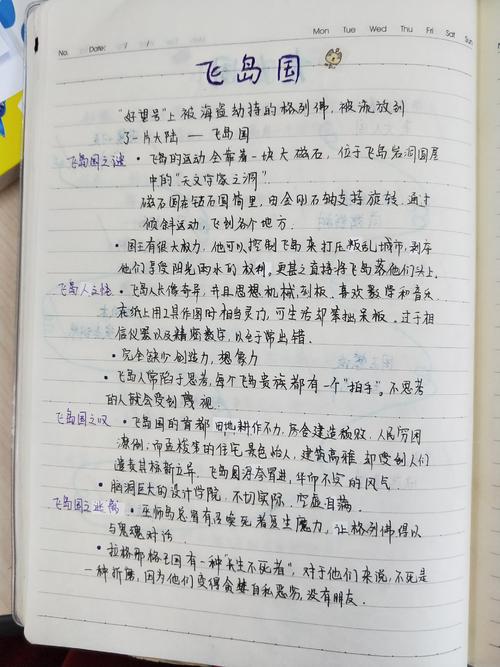 No.
Date: / /
Mon Tue Wed Thu Fri Sat Sun
飞岛国
"好望号"上被海盗劫持的格列佛，被流放到
了一片大陆 — 飞岛国
飞岛国之谜 · 飞岛的运动全靠着一块大磁石，位于飞岛岩洞圆屋
中的"天文学家之洞"
磁石固在钻石圆筒里，由金刚石轴支持旋转．通过
倾斜运动，飞到各个地方．
· 国王有很大权力，他可以控制飞岛来打压叛乱城市，剥夺
他们享受阳光雨水的权利。更甚之直接将飞岛落他们头上。
飞岛人之怪 · 飞岛人长像奇异，并且思想机械、刻板．喜欢数学和音乐．
在纸上用工具作图时相当灵巧，可生活却笨拙呆板．过于相
信仪器以及精密数字，以至于常出错．
· 完全缺少创造力，想象力
· 飞岛人常陷于思考，每个飞岛贵族都有一个"拍手"。不思考
的人就会受到蔑视．
飞岛国之叹 · 飞岛国的首都田地耕作不力，房舍建造颓败，人民穷困
潦倒；而孟诺第的住宅景色怡人，建筑高雅却受到人们
谴责其标新立异．飞岛国浮夸冒进，华而不实的风气．
· 脑洞巨大的设计学院，不切实际．空虚自满．
飞岛国之 · 巫师岛总督有召唤死者复生魔力，让格列佛得以
与鬼魂对话．
· 拉格那格王国有一种"长生不死者"，对于他们来说，不死是
一种折磨，因为他们变得贪婪自私恶劣，没有朋友．